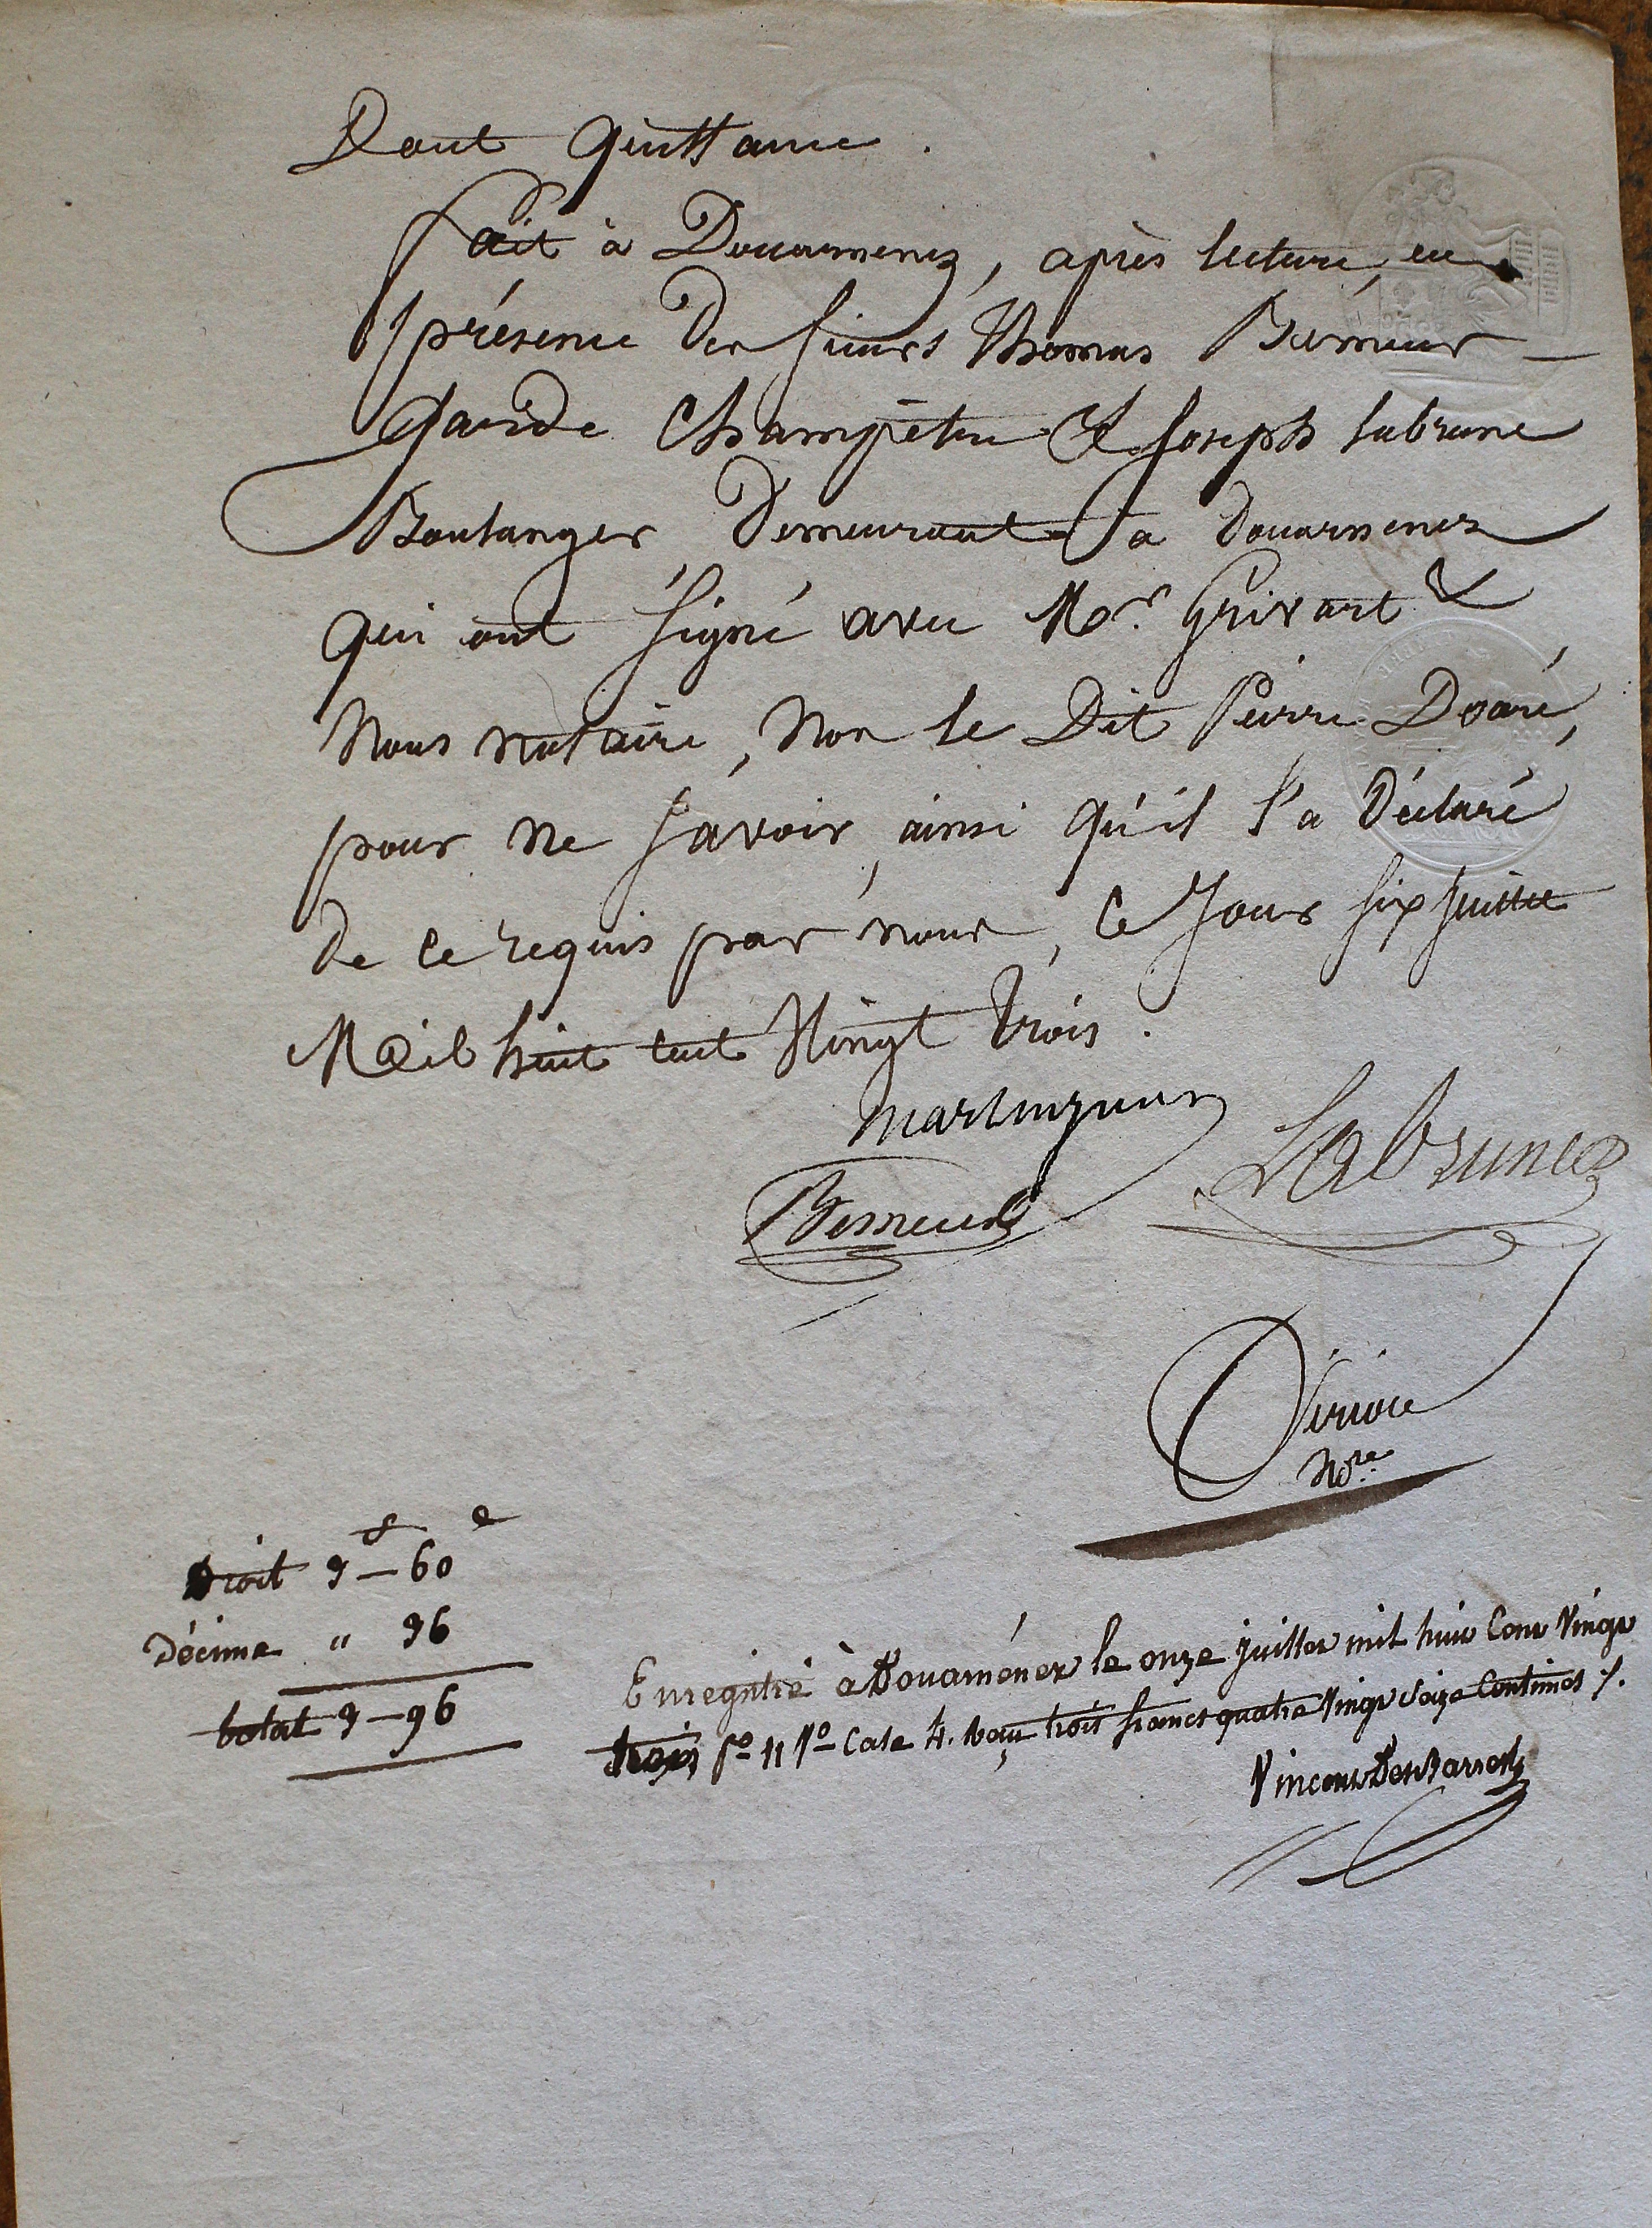 Dont Quittance.
fait à Douarnenez, après lecture, en
présence des Sieurs Thomas
Garde Champêtre & Joseph Labrune
Boulanger Demeurant à Douarnenez
qui ont signé avec Mr. Grivart &
Nous notaire, Non le Dit Pierre Doaré,
pour ne savoir, ainsi qu'il l'a Déclaré
De ce requis par nous, Ce Jour six Juillet
Mil huit cent Vingt trois.
Labrune
Nore
Droit 3 f — 60 c
Décime " 36
total 3 — 96
Enregistré à Douarnénez le onze juillet mil huit Cent Vingt
trois fo 11 Ro Case 4. reçu trois francs quatre Vingt seize Centimes ./.
Vincent DesBarres